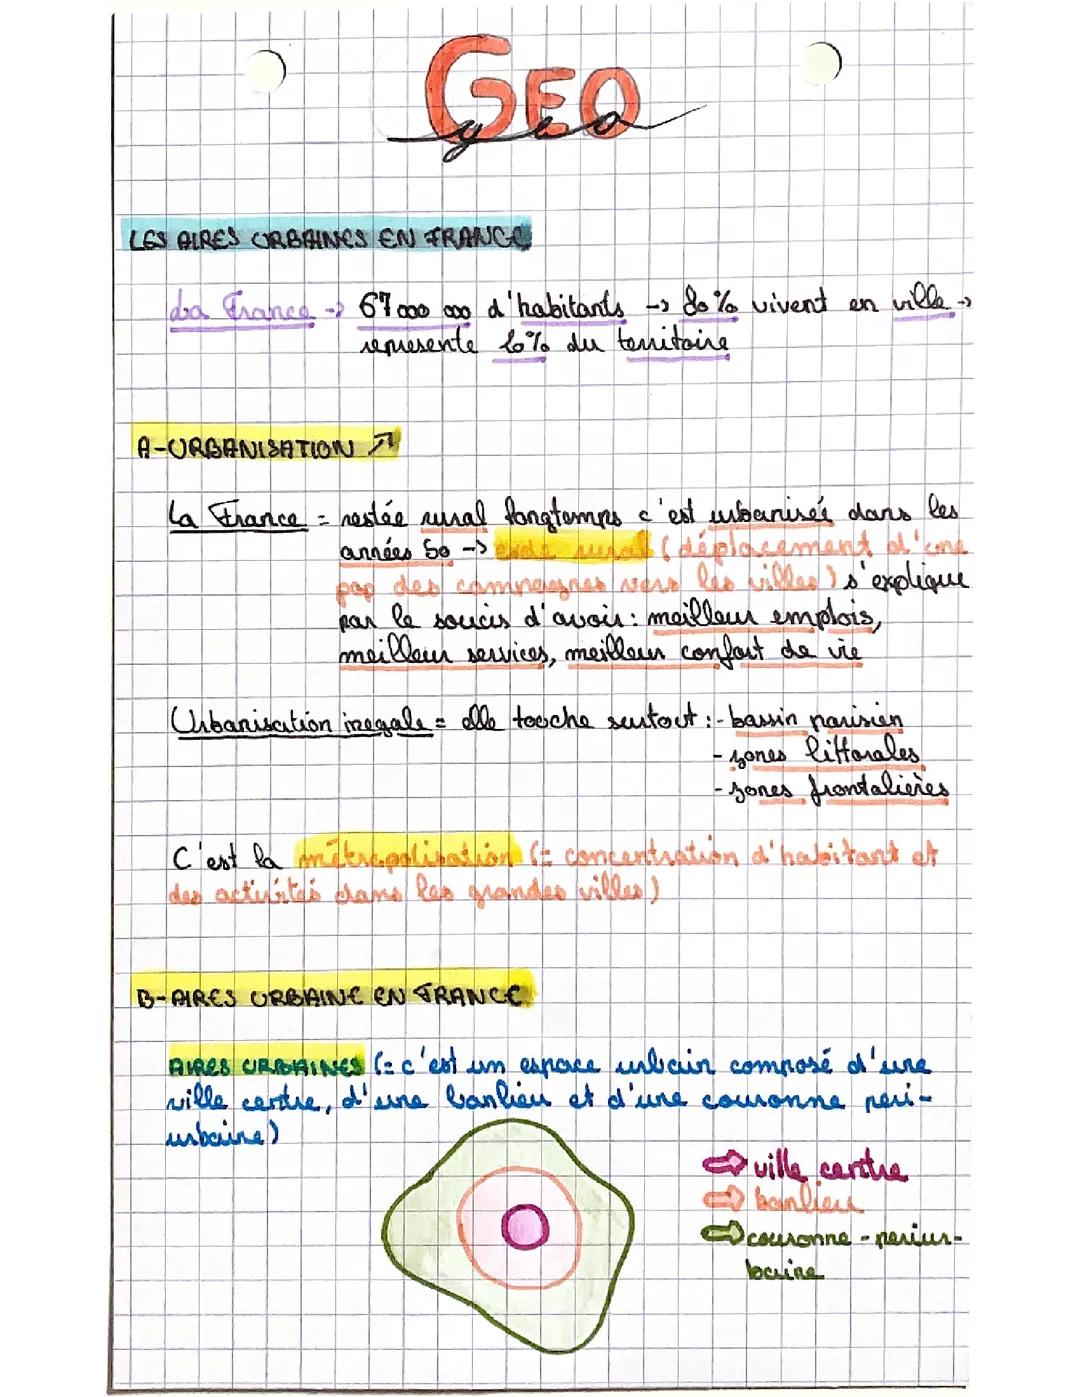 GEO
geo
LES AIRES URBAINES EN FRANCE
La France -> 67 000 000 d'habitants -> 80% vivent en ville ->
représente 20% du territoire
A-URBANISATION ↗
La France = restée rural longtemps c'est urbanisée dans les
années 50 -> exode rural (déplacement d'une
pop des campagnes vers les villes) s'explique
par le soucis d'avoir : meilleur emplois,
meilleur services, meilleur confort de vie
Urbanisation inégale = elle touche surtout : - bassin parisien
- zones littorales
- zones frontalières
C'est la métropolisation (= concentration d'habitant et
des activités dans les grandes villes)
B- AIRES URBAINE EN FRANCE
AIRES URBAINES (= c'est un espace urbain composé d'une
ville centre, d'une banlieu et d'une couronne péri-
urbaine)
⇨ ville centre
⇨ banlieu
⇨ couronne - périur-
baine